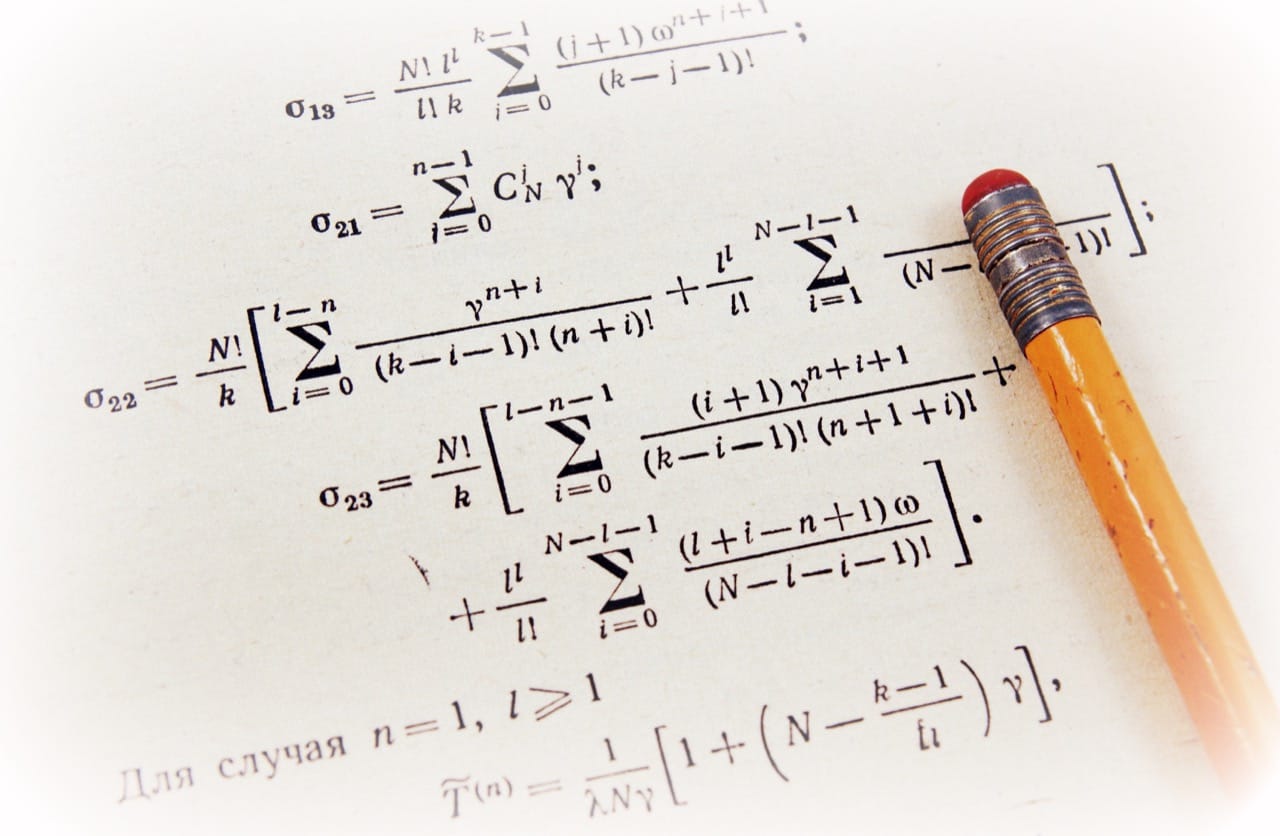 σ₁₃ = N! lˡ / l! k ∑_{j=0}^{k−1} (j+1) ω^{n+j+1} / (k−j−1)!;
σ₂₁ = ∑_{i=0}^{n−1} C_N^i γ^i;
σ₂₂ = N! / k [ ∑_{i=0}^{l−n} γ^{n+i} / (k−i−1)! (n+i)! + lˡ / l! ∑_{i=1}^{N−l−1} / (N− 1)! ];
σ₂₃ = N! / k [ ∑_{i=0}^{l−n−1} (i+1) γ^{n+i+1} / (k−i−1)! (n+1+i)! +
+ lˡ / l! ∑_{i=0}^{N−l−1} (l+i−n+1) ω / (N−l−i−1)! ].
Для случая n=1, l ⩾ 1
T̃⁽ⁿ⁾ = 1 / λNγ [ 1 + ( N − k−1 / ) γ ],